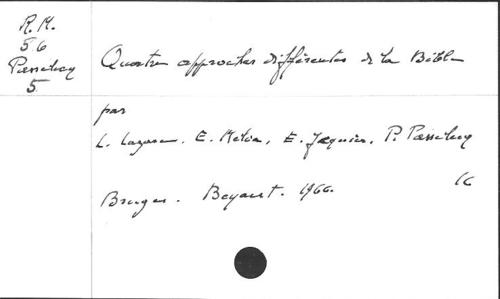 R.M.
56
Passelecq
5
Quatre approches différentes de la Bible
par
L. Lazare. E. Melia, E. Jequier, P. Passelecq
Bruges. Beyaert. 1966.